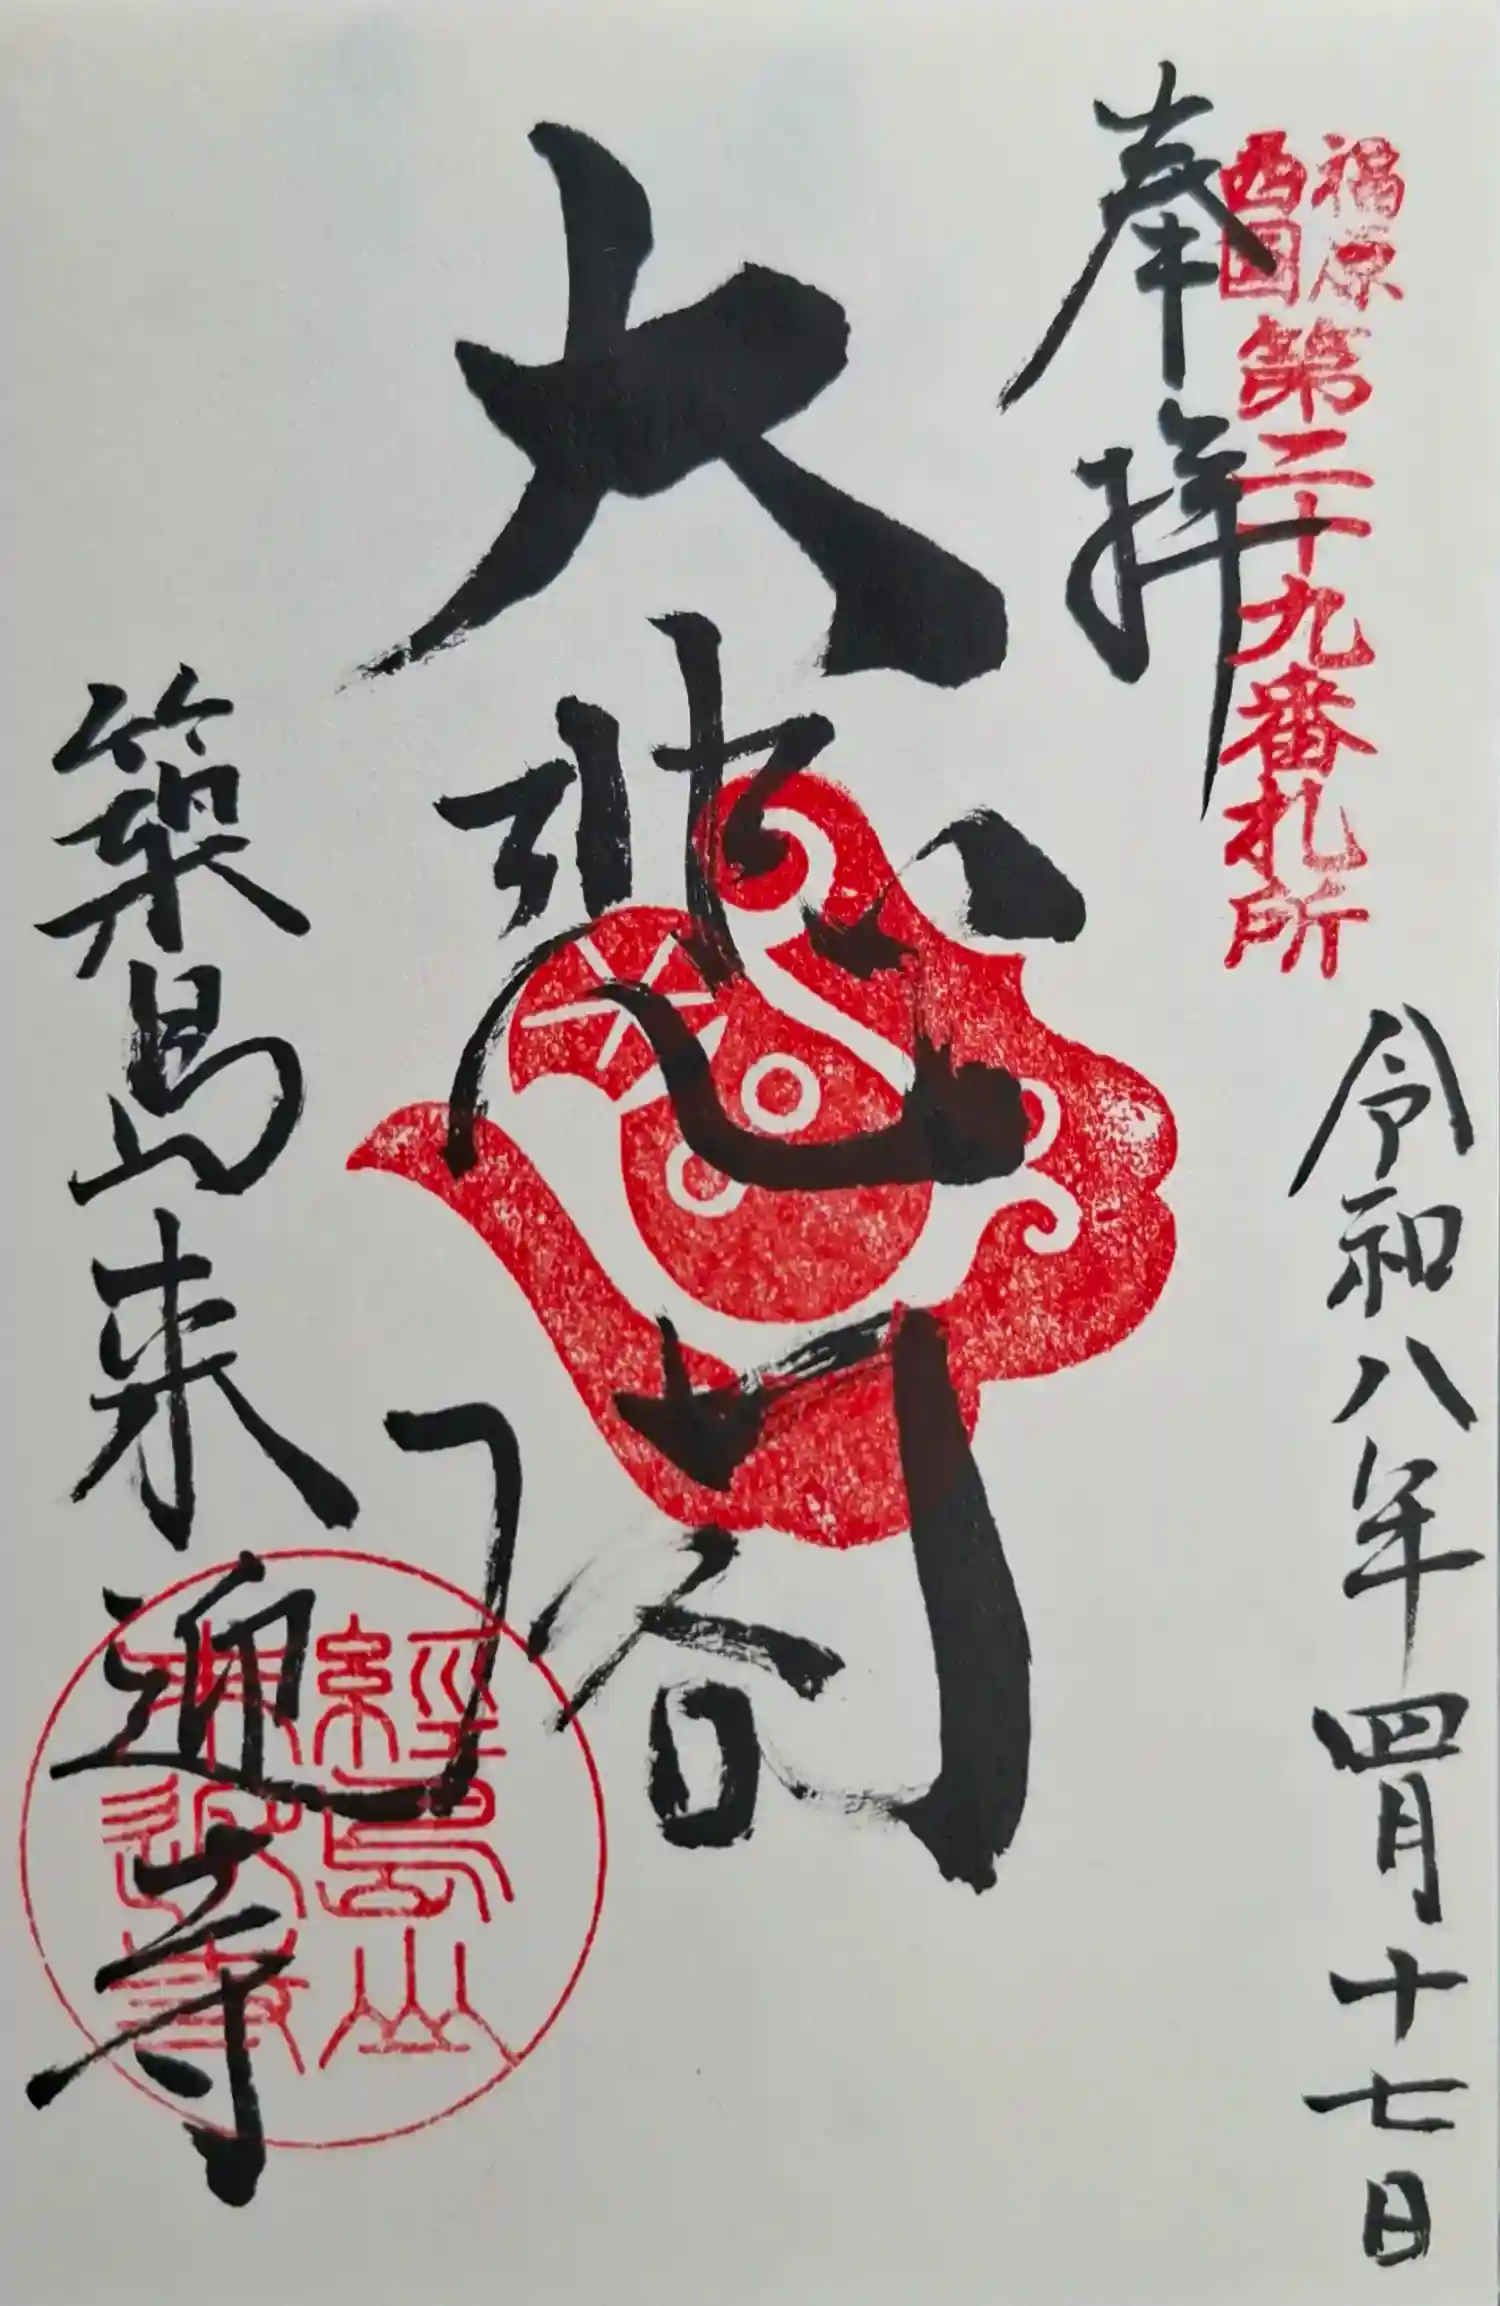 福原
西國
第二十九番札所
奉拝
令和八年四月十七日
大悲閣
築島来迎寺
經島山
來迎寺